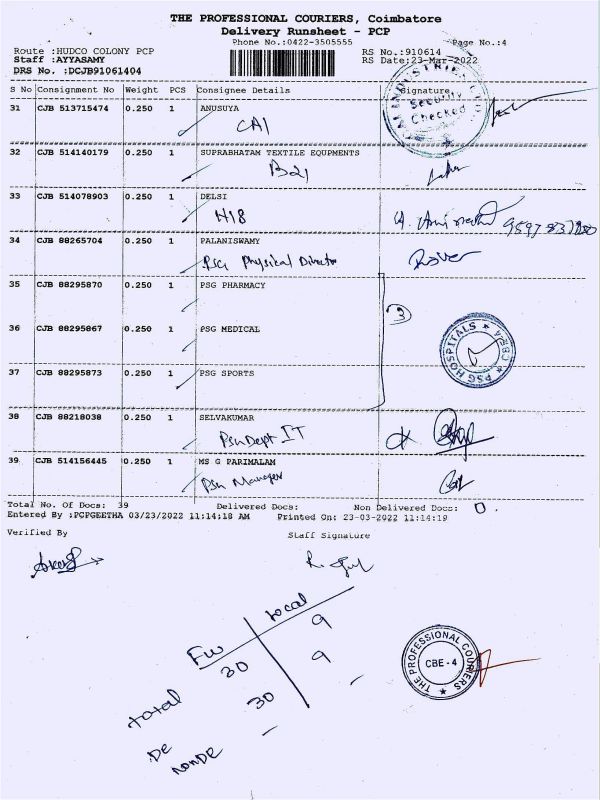 THE PROFESSIONAL COURIERS, Coimbatore
Delivery Runsheet - PCP
Phone No.:0422-3505555 Page No.:4
Route :HUDCO COLONY PCP RS No.:910614
Staff :AYYASAMY RS Date:23-Mar-2022
DRS No. :DCJB91061404
S No Consignment No Weight PCS Consignee Details Signature
31 CJB 513715474 0.250 1 ANUSUYA
CA1
Security Checked
32 CJB 514140179 0.250 1 SUPRABHATAM TEXTILE EQUPMENTS
B21
33 CJB 514078903 0.250 1 DELSI
H18
34 CJB 88265704 0.250 1 PALANISWAMY
PSG Physical Director
35 CJB 88295870 0.250 1 PSG PHARMACY
3
36 CJB 88295867 0.250 1 PSG MEDICAL
PSG HOSPITALS
37 CJB 88295873 0.250 1 PSG SPORTS
38 CJB 88218038 0.250 1 SELVAKUMAR
Dept IT
39 CJB 514156445 0.250 1 MS G PARIMALAM
Manager
Total No. Of Docs: 39 Delivered Docs: Non Delivered Docs: 0
Entered By :PCPGEETHA 03/23/2022 11:14:18 AM Printed On: 23-03-2022 11:14:19
Verified By Staff Signature
FW Local
30 9
Total 30 9
DE - -
NONDE
THE PROFESSIONAL COURIERS
CBE - 4